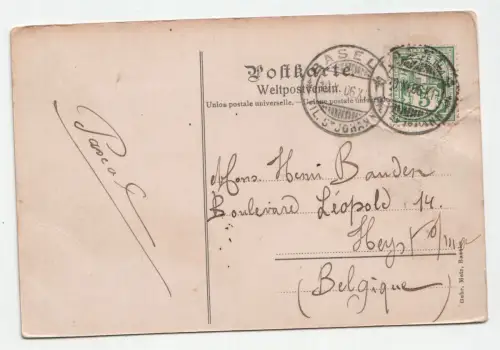 Postkarte.
Weltpostverein.
Union postale universelle. — Unione postale universale.
BASEL
FIL. ST. JOHANN
5
Mons. Henri Bauden
Boulevard Léopold 14.
Heyst s/m
(Belgique)